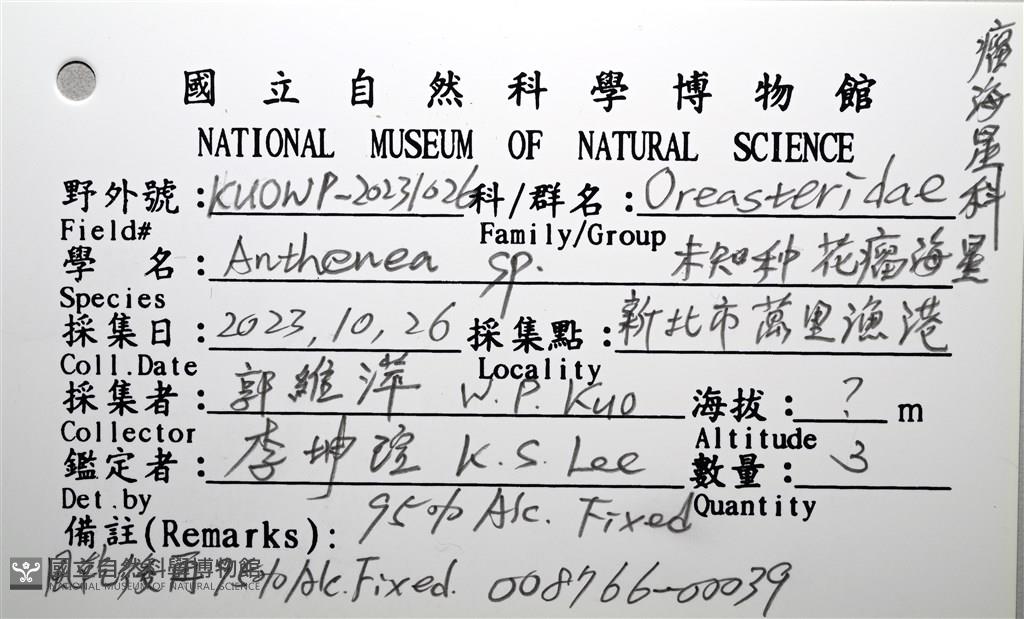 國立自然科學博物館
NATIONAL MUSEUM OF NATURAL SCIENCE
野外號：KUOWP-20231026 科/群名：Oreasteridae 瘤海星科
Field# Family/Group
學 名：Anthenea sp. 未知种 花瘤海星
Species
採集日：2023,10,26 採集點：新北市萬里漁港
Coll.Date Locality
採集者：郭維萍 W.P. Kuo 海拔：? m
Collector Altitude
鑑定者：李坤瑄 K.S. Lee 數量：3
Det.by Quantity
備註(Remarks)： 95% Alc. Fixed
後再 95% Alc. Fixed. 008766-00039
國立自然科學博物館
NATIONAL MUSEUM OF NATURAL SCIENCE